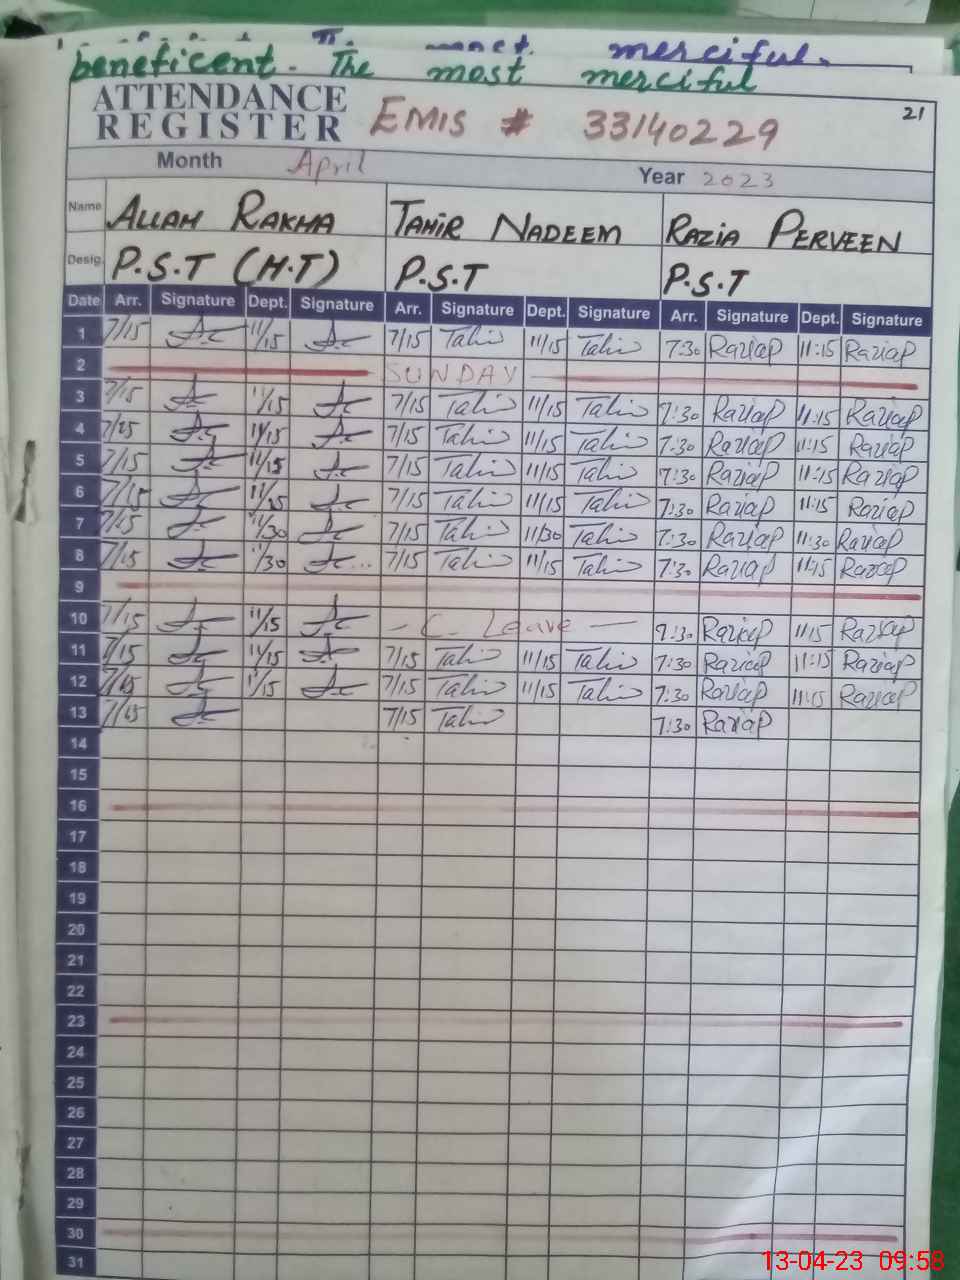 most merciful.
beneficent. The most merciful
ATTENDANCE
REGISTER EMIS # 33140229 21
Month April Year 2023
Name ALLAH RAKHA TAHIR NADEEM RAZIA PERVEEN
Desig. P.S.T (H.T) P.S.T P.S.T
Date Arr. Signature Dept. Signature Arr. Signature Dept. Signature Arr. Signature Dept. Signature
1 7/15 11/15 7/15 Tahir 11/15 Tahir 7:30 RaziaP 11:15 RaziaP
2 SUNDAY
3 7/15 11/15 7/15 Tahir 11/15 Tahir 7:30 RaziaP 11:15 RaziaP
4 7/15 11/15 7/15 Tahir 11/15 Tahir 7:30 RaziaP 11:15 RaziaP
5 7/15 11/15 7/15 Tahir 11/15 Tahir 7:30 RaziaP 11:15 RaziaP
6 7/15 11/15 7/15 Tahir 11/15 Tahir 7:30 RaziaP 11:15 RaziaP
7 7/15 11/30 7/15 Tahir 11/30 Tahir 7:30 RaziaP 11:30 RaziaP
8 7/15 11/30 7/15 Tahir 11/15 Tahir 7:30 RaziaP 11:15 RaziaP
9
10 7/15 11/15 - C. Leave - 7:30 RaziaP 11:15 RaziaP
11 7/15 11/15 7/15 Tahir 11/15 Tahir 7:30 RaziaP 11:15 RaziaP
12 7/15 11/15 7/15 Tahir 11/15 Tahir 7:30 RaziaP 11:15 RaziaP
13 7/15 7/15 Tahir 7:30 RaziaP
14
15
16
17
18
19
20
21
22
23
24
25
26
27
28
29
30
31
13-04-23 09:58